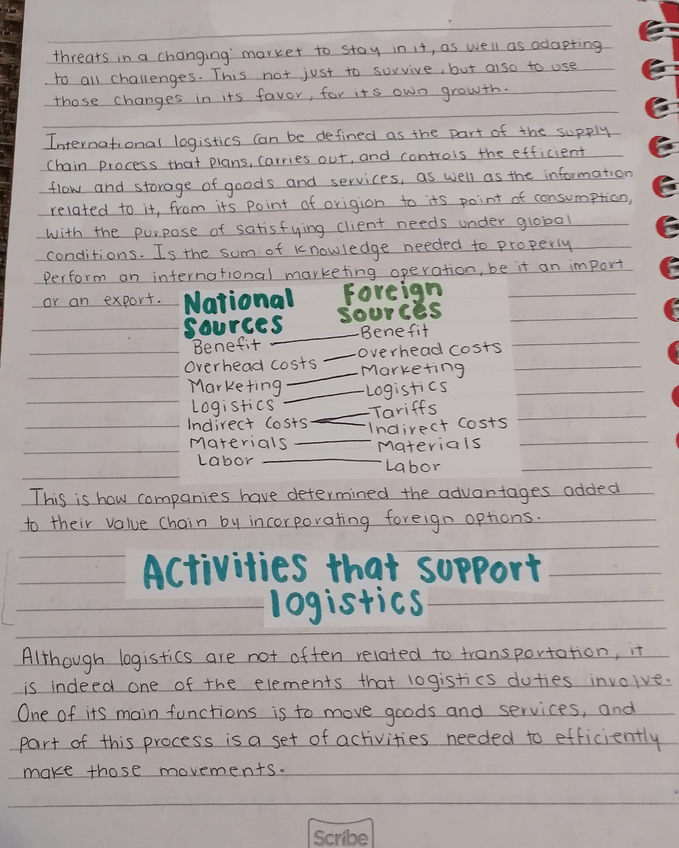 threats in a changing market to stay in it, as well as adapting
to all challenges. This not just to survive, but also to use
those changes in its favor, for its own growth.
International logistics can be defined as the part of the supply
chain process that plans, carries out, and controls the efficient
flow and storage of goods and services, as well as the information
related to it, from its point of origion to its point of consumption,
with the purpose of satisfying client needs under global
conditions. Is the sum of knowledge needed to properly
perform an international marketing operation, be it an import
or an export.
National Foreign
Sources Sources
Benefit Benefit
Overhead costs Overhead costs
Marketing Marketing
Logistics Logistics
Tariffs
Indirect Costs Indirect costs
Materials Materials
Labor Labor
This is how companies have determined the advantages added
to their value chain by incorporating foreign options.
Activities that support
logistics
Although logistics are not often related to transportation, it
is indeed one of the elements that logistics duties involve.
One of its main functions is to move goods and services, and
part of this process is a set of activities needed to efficiently
make those movements.
Scribe